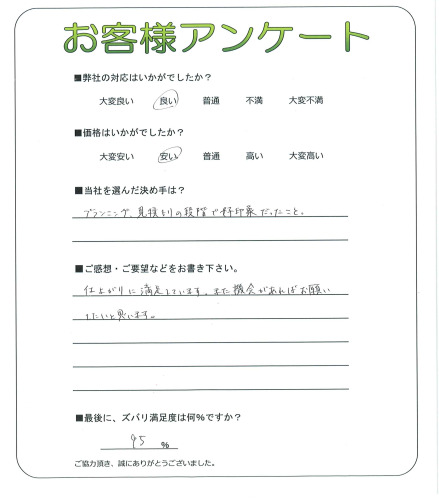 お客様アンケート
■弊社の対応はいかがでしたか？
大変良い 良い 普通 不満 大変不満
■価格はいかがでしたか？
大変安い 安い 普通 高い 大変高い
■当社を選んだ決め手は？
プランニング、見積もりの段階で好印象だったこと。
■ご感想・ご要望などをお書き下さい。
仕上がりに満足しています。また機会があればお願い
したいと思います。
■最後に、ズバリ満足度は何％ですか？
95 ％
ご協力頂き、誠にありがとうございました。